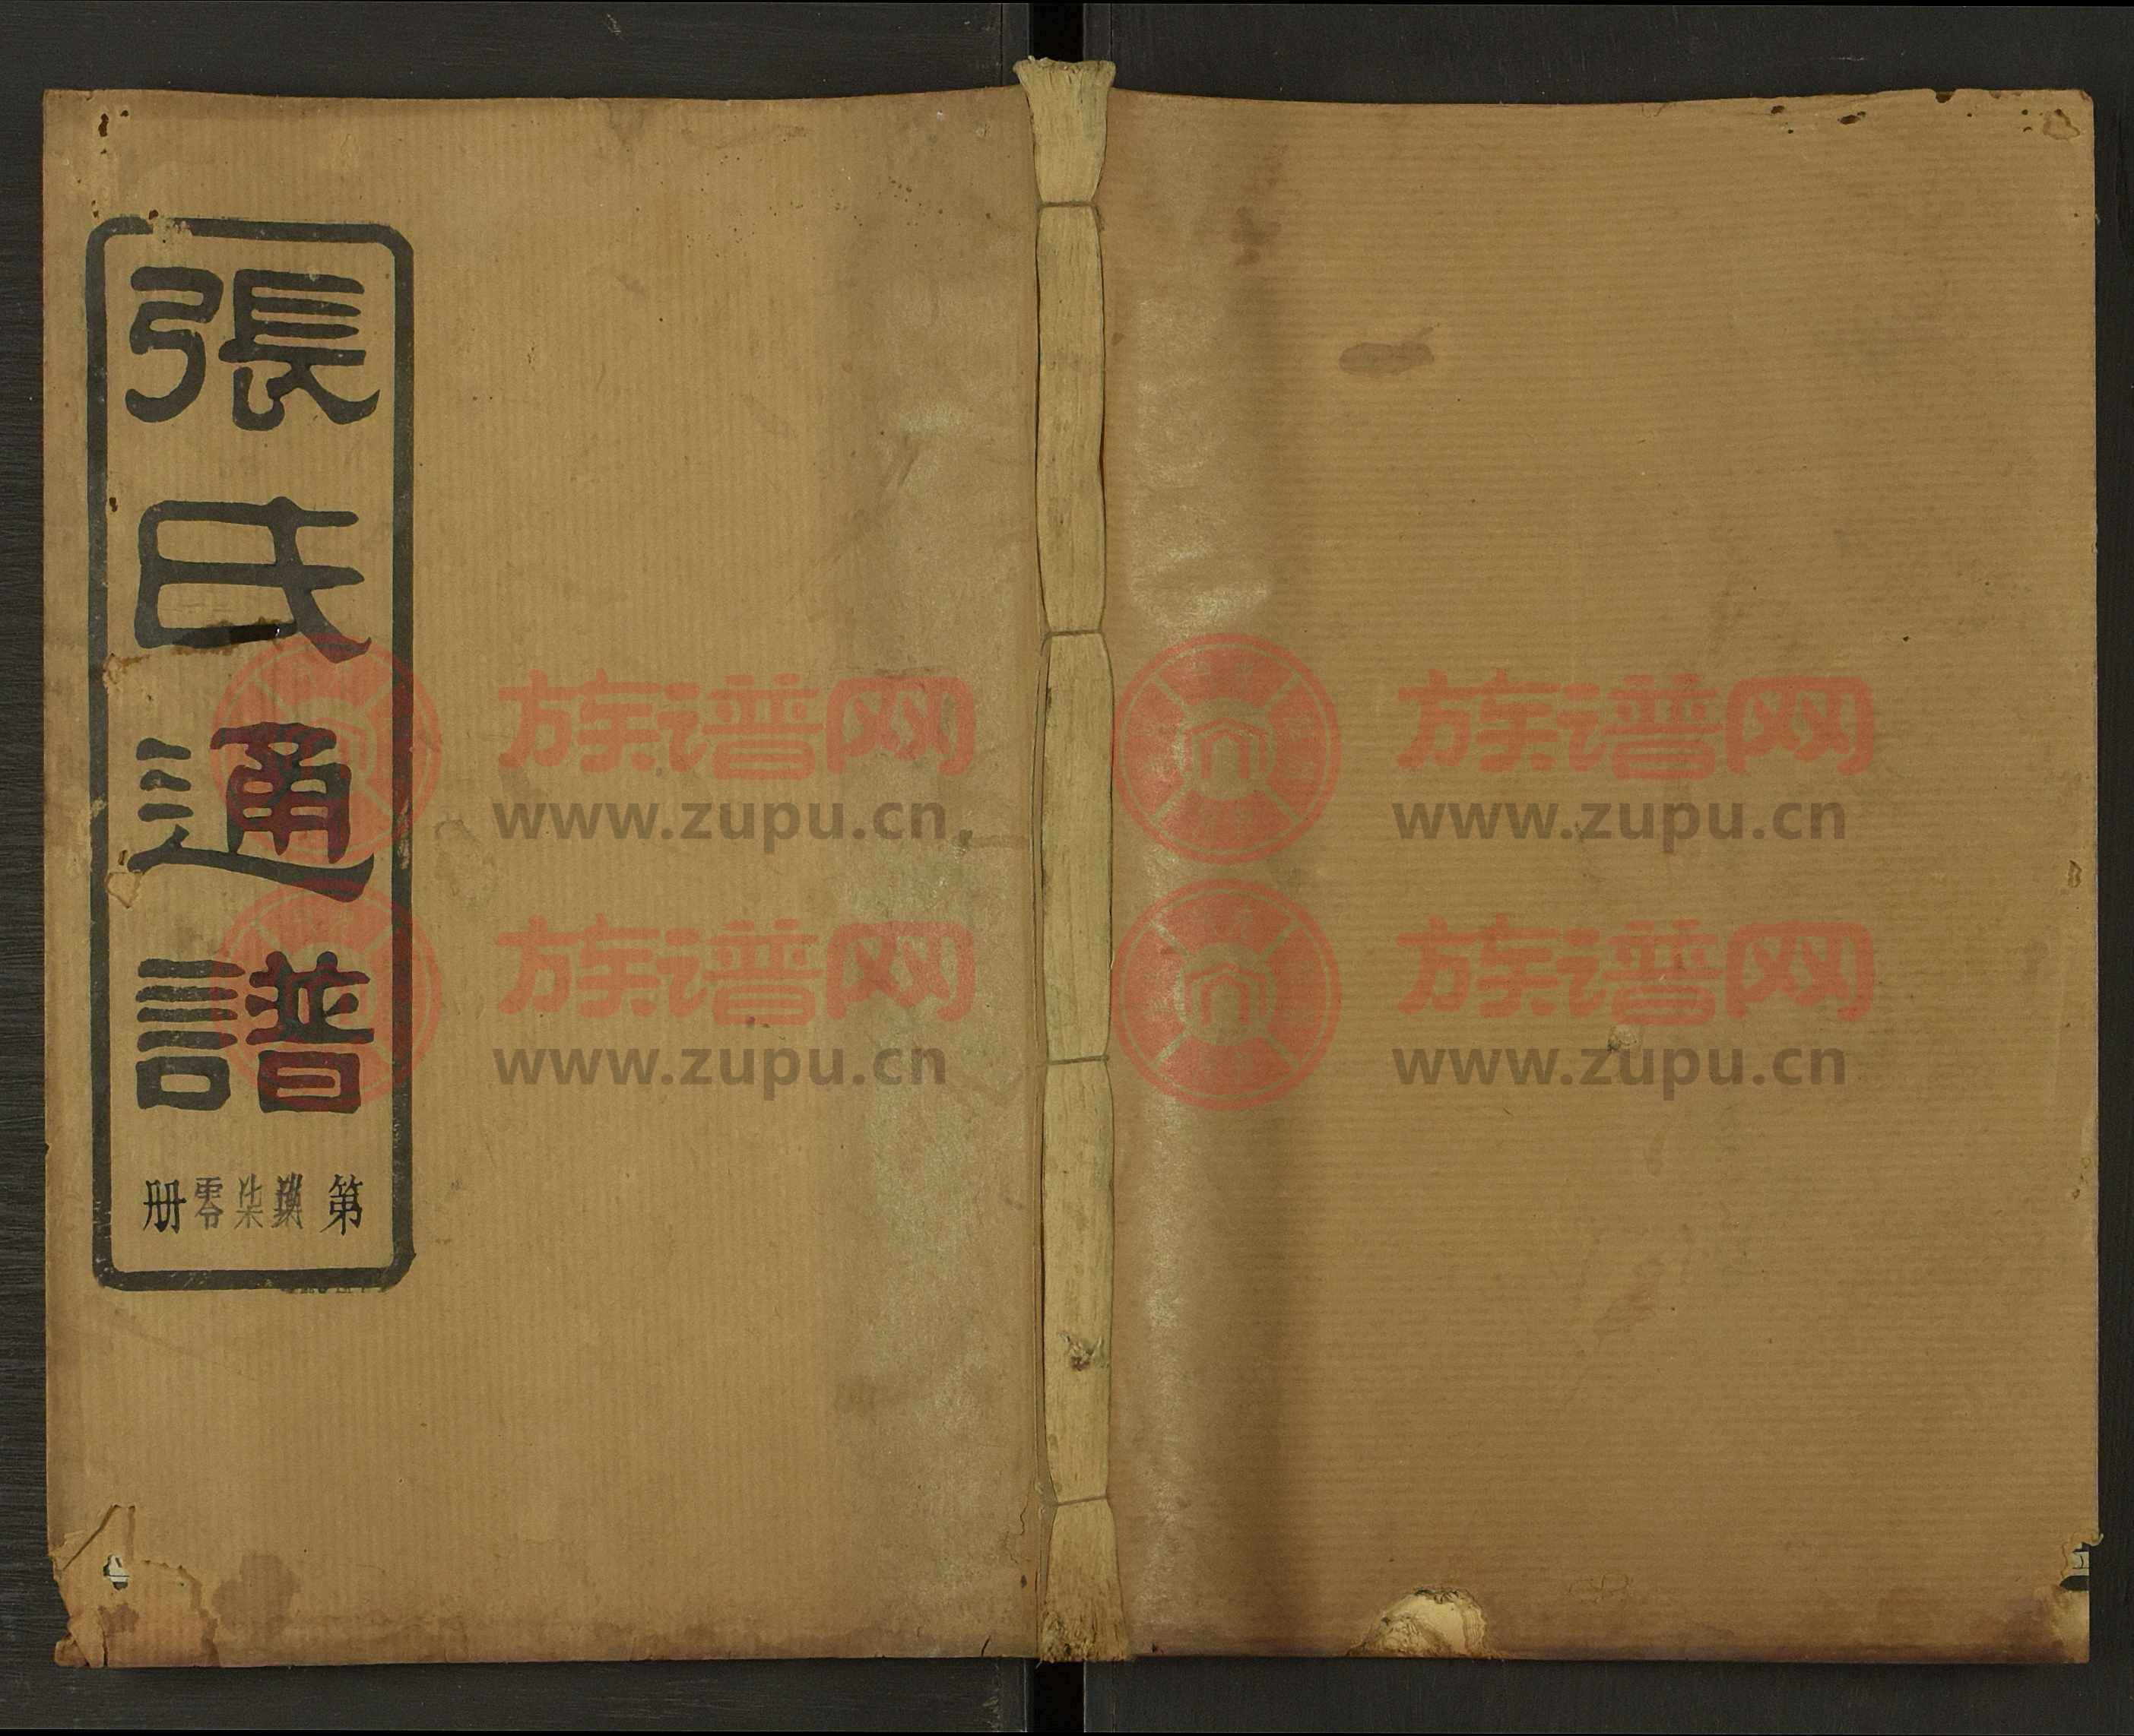 張氏通譜
第 柒零册
族谱网
www.zupu.cn
族谱网
www.zupu.cn
族谱网
www.zupu.cn
族谱网
www.zupu.cn